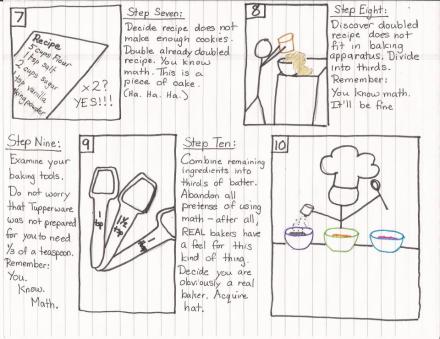 7
Recipe
5 cups flour
1 tsp salt
2 cups sugar
1 tsp vanilla
baking powder
x2?
YES!!!
Step Seven:
Decide recipe does not
make enough cookies.
Double already doubled
recipe. You know
math. This is a
piece of cake.
(Ha. Ha. Ha.)
8
Step Eight:
Discover doubled
recipe does not
fit in baking
apparatus. Divide
into thirds.
Remember:
You know math.
It'll be fine
Step Nine:
Examine your
baking tools.
Do not worry
that Tupperware
was not prepared
for you to need
1/3 of a teaspoon.
Remember:
You.
Know.
Math.
9
1
tsp
1 1/2
tsp
Step Ten:
Combine remaining
ingredients into
thirds of batter.
Abandon all
pretense of using
math - after all,
REAL bakers have
a feel for this
kind of thing.
Decide you are
obviously a real
baker. Acquire
hat.
10